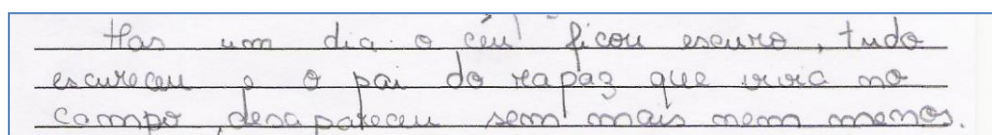 Mas um dia o céu ficou escuro, tudo
escureceu e o pai do rapaz que vivia no
campo, desapareceu sem mais nem menos.